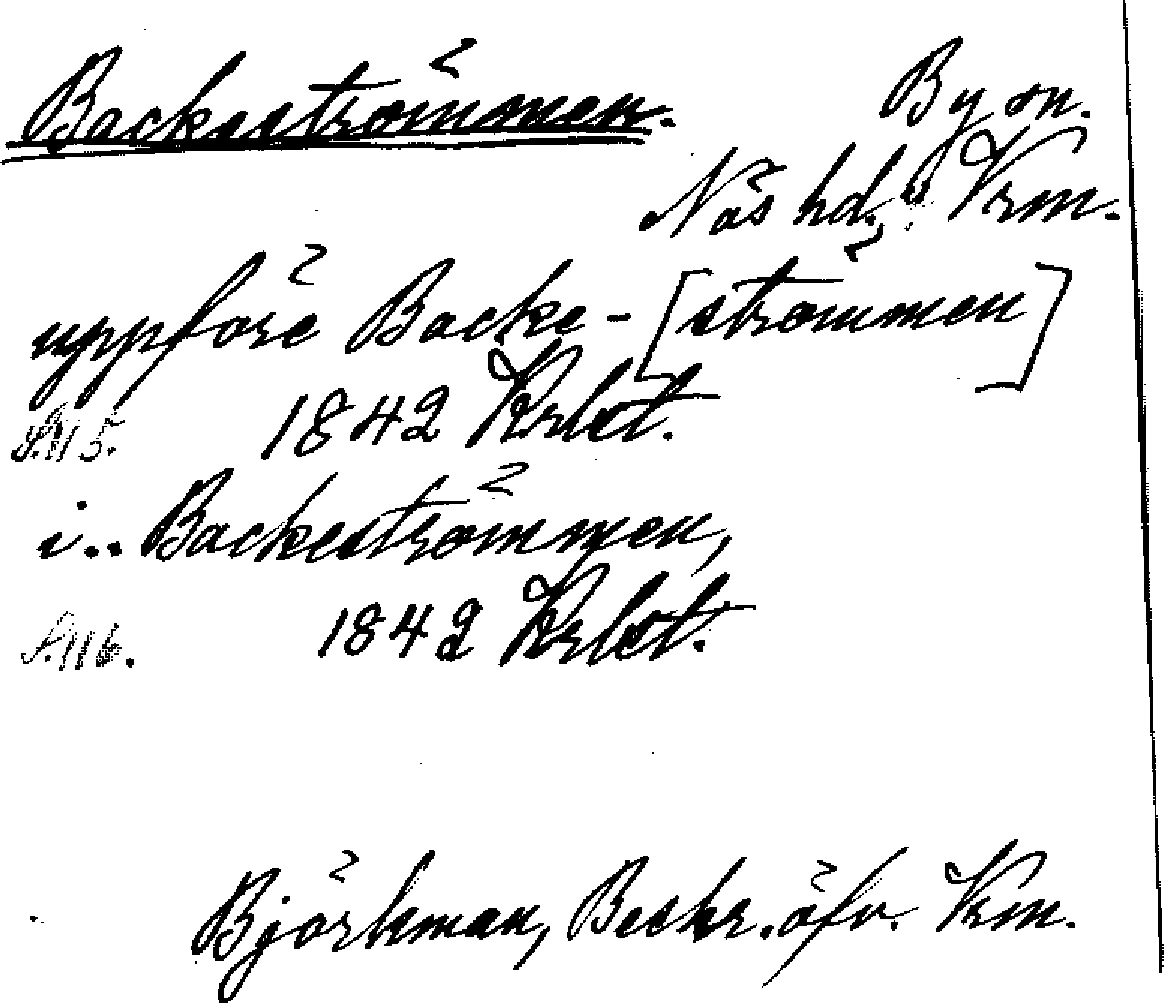 Backeströmmen.
By sn.
Näs hd. Vrm.
uppföre Backe-[strömmen]
S. 115. 1842 Krlot.
i.. Backeströmmen,
S. 116. 1842 Krlot.
Björkman, Beskr. öfv. Vm.